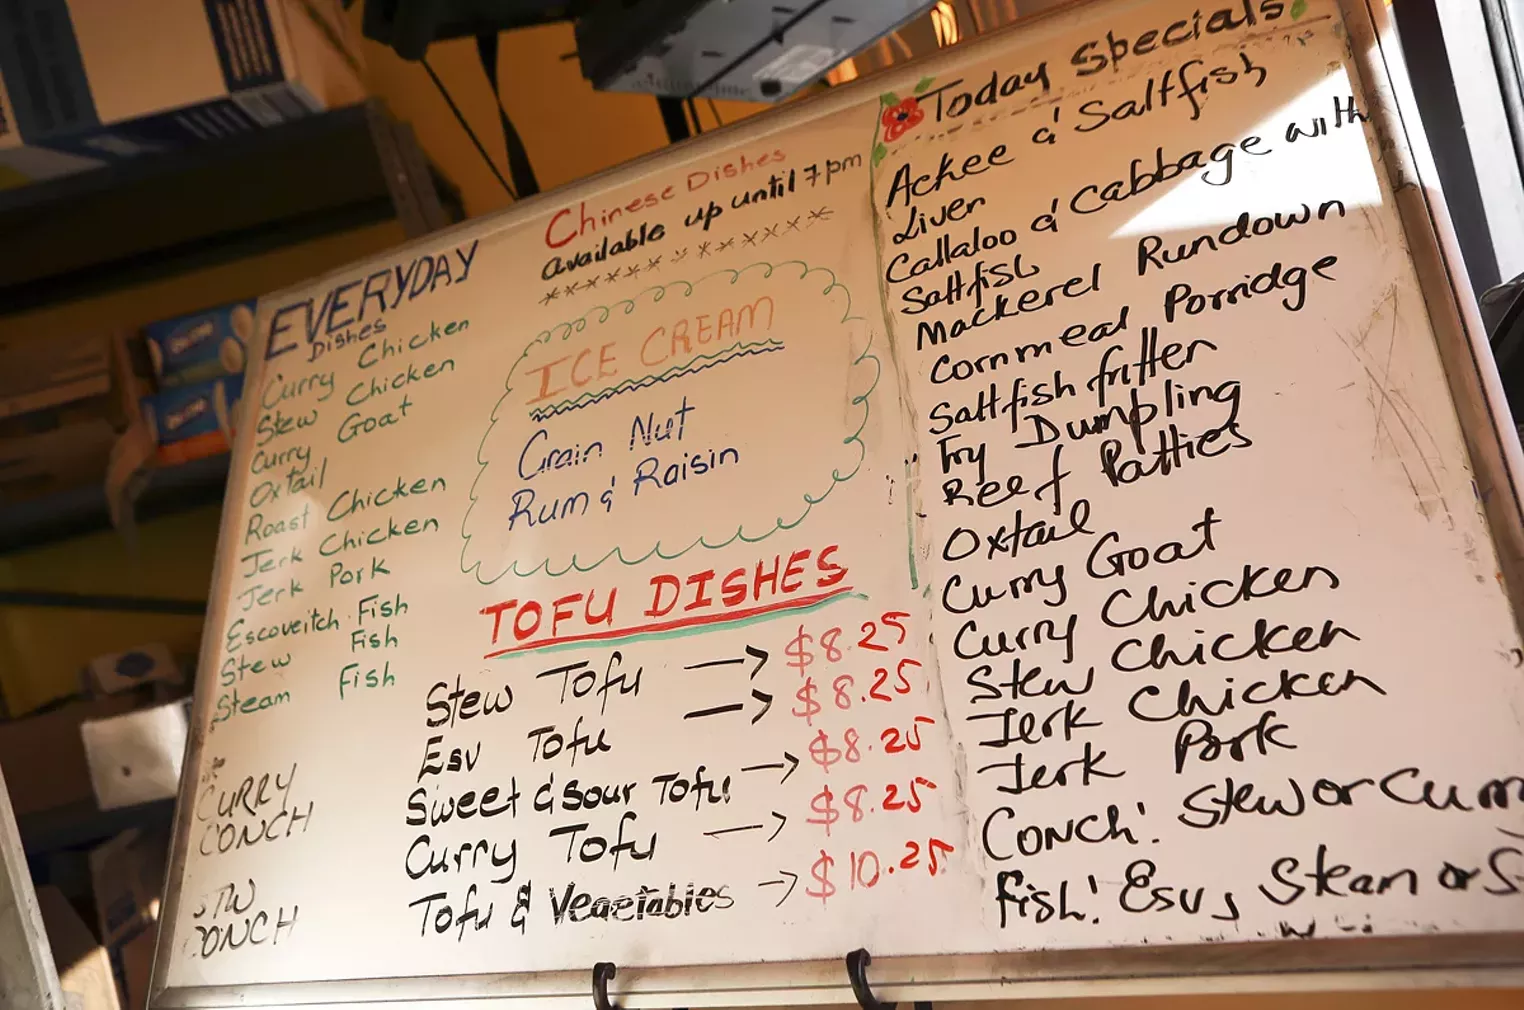 EVERYDAY
Dishes
Curry Chicken
Stew Chicken
Curry Goat
Oxtail
Roast Chicken
Jerk Chicken
Jerk Pork
Escoveitch Fish
Stew Fish
Steam Fish
CURRY
CONCH
STW
CONCH
Chinese Dishes
available up until 7pm
ICE CREAM
Grain Nut
Rum & Raisin
TOFU DISHES
Stew Tofu → $8.25
Esv Tofu → $8.25
Sweet & Sour Tofu → $8.25
Curry Tofu → $8.25
Tofu & Vegetables → $10.25
Today Specials
Ackee & Saltfish
Liver
Callaloo & Cabbage with
Saltfish
Mackerel Rundown
Cornmeal Porridge
Saltfish fritter
Fry Dumpling
Beef Patties
Oxtail
Curry Goat
Curry Chicken
Stew Chicken
Jerk Chicken
Jerk Pork
Conch! Stew or Curr
Fish! Esv, Steam or S